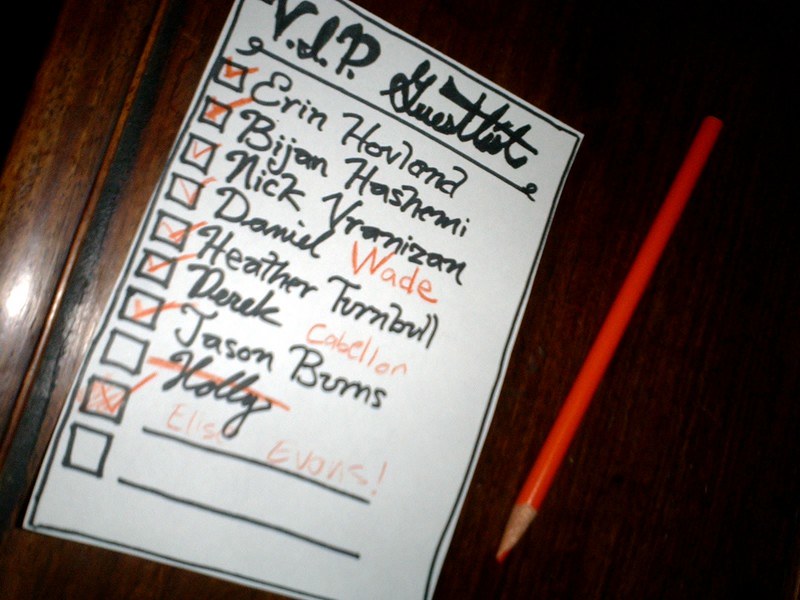 V.I.P. Guestlist
Erin Hovland
Bijan Hashemi
Nick Vranizan
Daniel Wade
Heather Turnbull
Derek Cabellon
Jason Burns
Holly
Elise Evans!